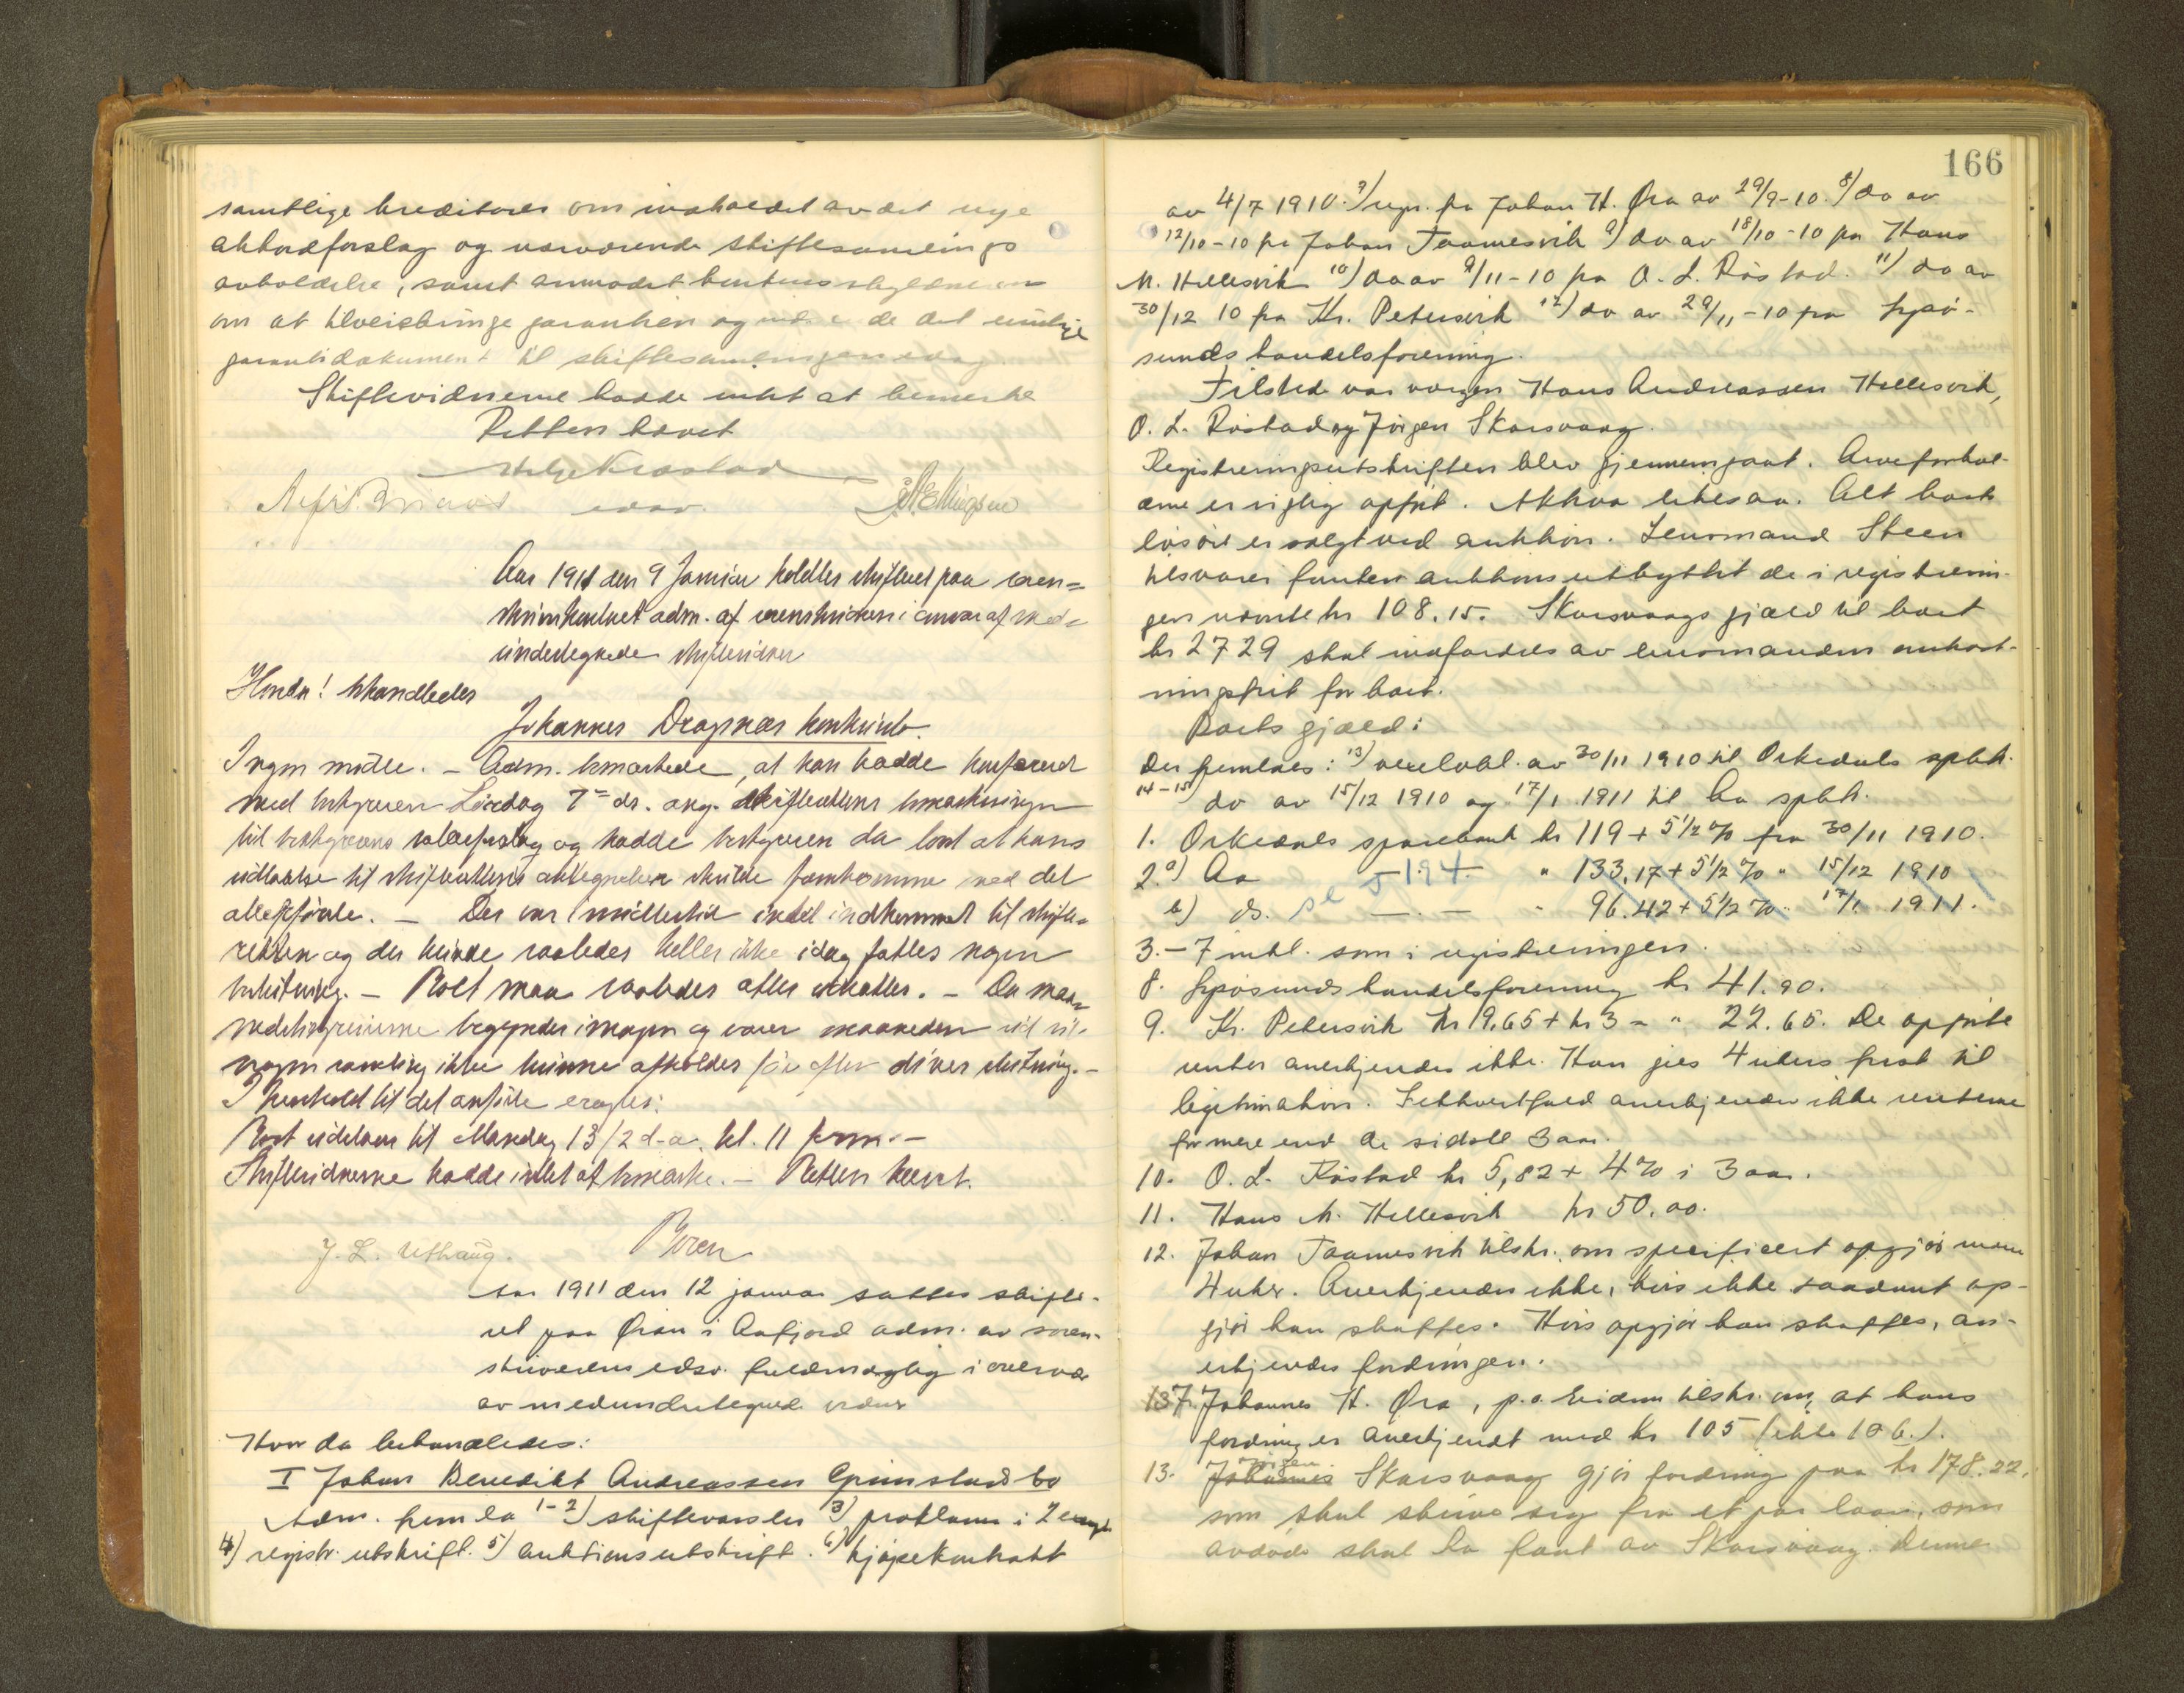 samtlige kreditorer om indholdet av det nye
akkordforslag og nærværende skiftesamlings
avholdelse, samt anmodet konkursskyldneren
om at tilveiebringe garantien og de det endelige
garantidokument til skiftesamlingen idag.
Skiftevidnerne hadde intet at bemerke
Retten hævet
Aar 1911 den 9 Januar holdtes skifteret paa soren=
skriverkontoret adm. af sorenskriveren i overvær af med=
undertegnede skiftevidner
Hvorda! behandledes
Johannes Dragsnæs konkursbo.
Ingen mødte. – Adm. bemærkede, at han hadde konfereret
med bestyreren Lørdag 7de ds. ang. skifterettens bemærkninger
til bestyrerens forslag og hadde bestyreren da lovet at hans
udtalelse til skifterettens antegnelser skulde fremkomme med det
allerførste. – Der var imidlertid intet indkommet til skifte=
retten og der kunde saaledes heller ikke idag fattes nogen
beslutning. – Boet maa saaledes atter udsættes. – Da maa=
nedstingene begynder imorgen og varer maaneden ud vil
nogen samling ikke kunne afholdes før efter disses slutning. –
I henhold til det anførte eragtes:
Boet udstaar til Mandag 13/2 d-a. kl. 11 form. –
Skiftevidnerne hadde intet at bemærke. – Retten hævet.
J. L. Uthaug.
Aar 1911 den 12 januar sattes skifte-
ret paa Øran i Aafjord adm. av soren-
skriverens edsv. fuldmægtig i overvær
av medundertegnede vidner
Hvor da behandledes:
I Johan Benedikt Andreassen Grimstads bo
Adm. fremla 1-2) skiftevarsler 3) proklama i 2 expl.
4) registr. utskrift. 5) auktionsutskrift. 6) kjøpekontrakt
166
av 4/7 1910. 7) regn. fra Johan H. Øra av 29/9-10. 8) do av
12/10-10 fra Johan Taamesvik 9) do av 18/10-10 fra Hans
M. Hellesvik 10) do av 9/11-10 fra O. L. Røstad. 11) do av
30/12 10 fra Kr. Petersvik 12) do av 29/11-10 fra Lysø-
sunds handelsforening.
Tilstede var vergen Hans Andreassen Hellesvik,
O. L. Røstad og Jørgen Skarsvaag.
Registreringsutskriften blev gjennemgaat. Arveforhol-
dene er rigtig opført. Aktiva likesaa. Alt boets
løsøre er solgt ved auktion. Lensmand Steen
tilsvarer foruten auktionsutbyttet de i registrerin-
gen nævnte kr 108.15. Skarsvaags gjæld til boet
kr 27 29 skal indfordres av lensmanden omkost-
ningsfrit for boet.
Boets gjæld:
Der fremlaes: 13) vexelobl. av 30/11 1910 til Orkedals spbk.
14-15) do av 15/12 1910 og 17/1 1911 til Aa spbk.
1. Orkedals sparebank kr 119 + 5 1/2 % fra 30/11 1910.
2. a) Aa se 5194 " 133,17 + 5 1/2 % " 15/12 1910
b) ds. — . — " 96.42 + 5 1/2 % " 17/1 1911.
3.-7 inkl. som i registreringen.
8. Lysøsunds handelsforening kr 41.90.
9. Kr. Petersvik kr 19.65 + kr 3 = " 22.65. De opførte
renter anerkjendes ikke. Han gies 4 ukers frist til
legitimation. I ethvert fald anerkjendes ikke renterne
for mere end de sidste 3 aar.
10. O. L. Røstad kr 5,82 + 4 % i 3 aar.
11. Hans M. Hellesvik kr 50.00.
12. Johan Taamesvik tilskr. om specificert opgjør inden
4 uker. Anerkjendes ikke, hvis ikke saadant op-
gjør kan skaffes. Hvis opgjør kan skaffes, an-
erkjendes fordringen.
137. Johannes H. Øra, p.a. Eidem tilskr. om, at hans
fordring er anerkjendt med kr 105 (ikke 106.).
13. Jørgen Skarsvaag gjør fordring paa kr 178.22,
som skal skrive sig fra et par laan, som
avdøde skal ha faat av Skarsvaag. Denne